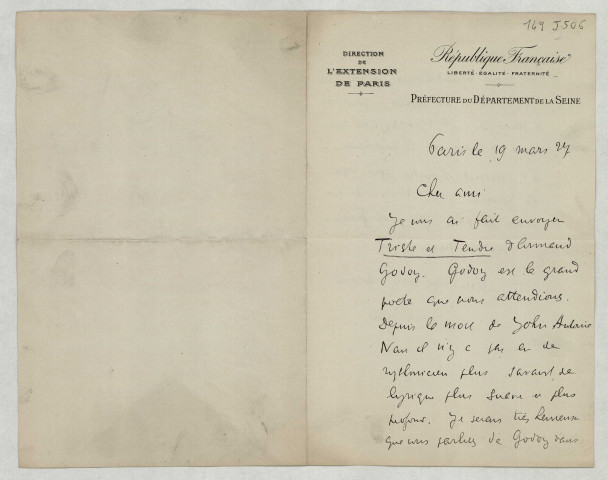 149 J 506
DIRECTION
DE
L'EXTENSION
DE PARIS
République Française
LIBERTÉ - ÉGALITÉ - FRATERNITÉ
PRÉFECTURE DU DÉPARTEMENT DE LA SEINE
Paris le 19 mars 27
Cher ami
Je vous ai fait envoyer
Triste et Tendre d'Armand
Godoy. Godoy est le grand
poete que nous attendions.
Depuis la mort de John Antoine
Nau il n'y a pas eu de
rythmicien plus savant, de
lyrique plus suave et plus
profond. Je serais très heureux
que vous parliez de Godoy dans